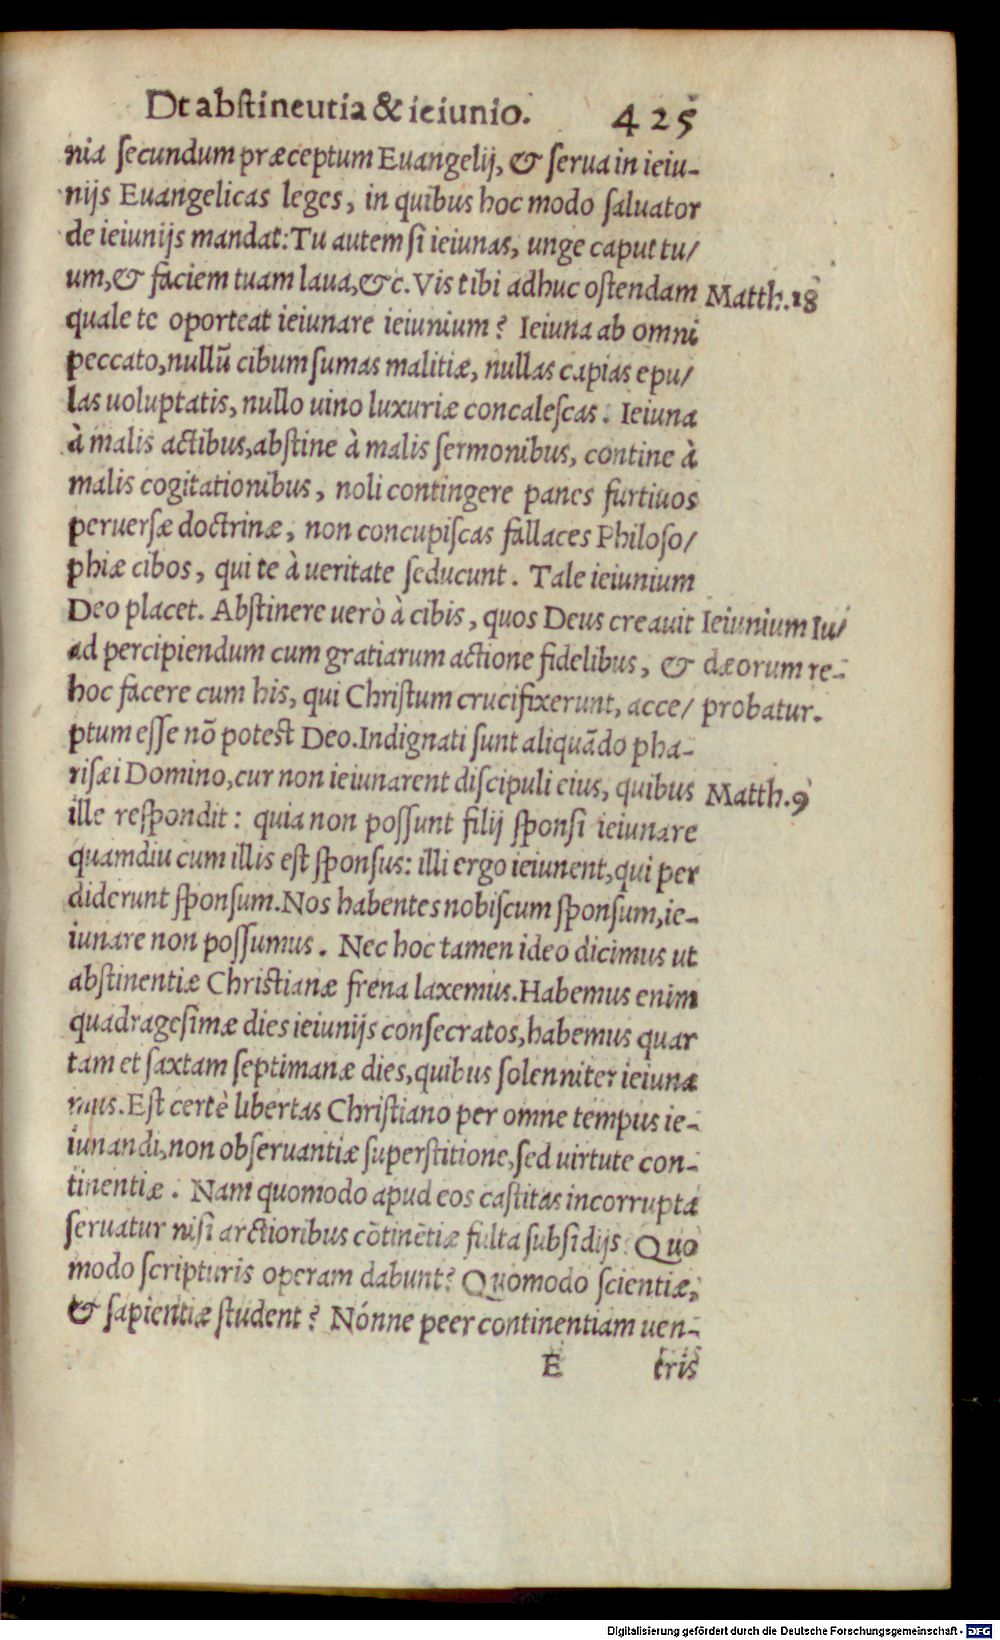 Dt abstineutia & ieiunio. 425
nia secundum præceptum Euangelij, & serua in ieiu-
nijs Euangelicas leges, in quibus hoc modo saluator
de ieiunijs mandat: Tu autem si ieiunas, unge caput tu/
um, & faciem tuam laua, &c. Vis tibi adhuc ostendam
Matth. 18
quale te oporteat ieiunare ieiunium? Ieiuna ab omni
peccato, nullũ cibum sumas malitiæ, nullas capias epu/
las uoluptatis, nullo uino luxuriæ concalescas. Ieiuna
à malis actibus, abstine à malis sermonibus, contine à
malis cogitationibus, noli contingere panes furtiuos
peruersæ doctrinæ, non concupiscas fallaces Philoso/
phiæ cibos, qui te à ueritate seducunt. Tale ieiunium
Deo placet. Abstinere uerò à cibis, quos Deus creauit
Ieiunium Iu/
ad percipiendum cum gratiarum actione fidelibus, &
dæorum re-
hoc facere cum his, qui Christum crucifixerunt, acce/
probatur.
ptum esse nõ potest Deo. Indignati sunt aliquãdo pha-
risæi Domino, cur non ieiunarent discipuli eius, quibus
Matth. 9
ille respondit: quia non possunt filij sponsi ieiunare
quamdiu cum illis est sponsus: illi ergo ieiunent, qui per
diderunt sponsum. Nos habentes nobiscum sponsum, ie-
iunare non possumus. Nec hoc tamen ideo dicimus ut
abstinentiæ Christianæ frena laxemus. Habemus enim
quadragesimæ dies ieiunijs consecratos, habemus quar
tam et saxtam septimanæ dies, quibus solenniter ieiuna
mus. Est certè libertas Christiano per omne tempus ie-
iunandi, non obseruantiæ superstitione, sed uirtute con-
tinentiæ. Nam quomodo apud eos castitas incorrupta
seruatur nisi arctioribus cõtinẽtiæ fulta subsidijs: Quo
modo scripturis operam dabunt? Quomodo scientiæ,
& sapientiæ student? Nónne peer continentiam uen-
E tris
Digitalisierung gefördert durch die Deutsche Forschungsgemeinschaft - DFG